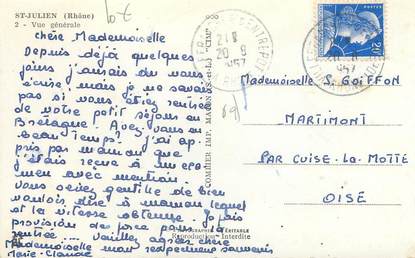 ST-JULIEN (Rhône)
2 - Vue générale
chère Mademoiselle
Depuis déjà quelques
jours j'aurais du vous
écrire mais je ne savais
pas si vous étiez rentrée
de votre petit séjour en
Bretagne. Avez vous eu
beau temps? j'ai ap-
pris par maman que
j'étais reçue à mon exa
men avec mention.
vous seriez gentille de bien
vouloir dire à maman lequel
et la vitesse obtenue. Je fais
provision de force pour la
rentrée... Veuillez agréer chère
Mademoiselle mon respectueux souvenir
Marie-Claude
COMBIER IMP. MACON "CIM"
PHOTOGRAPHIE VÉRITABLE
Reproduction Interdite
21 H
20 - 9
1957
20F
Mademoiselle S. GOIFFON
MARTIMONT
PAR CUISE-LA-MOTTE
OISE
69